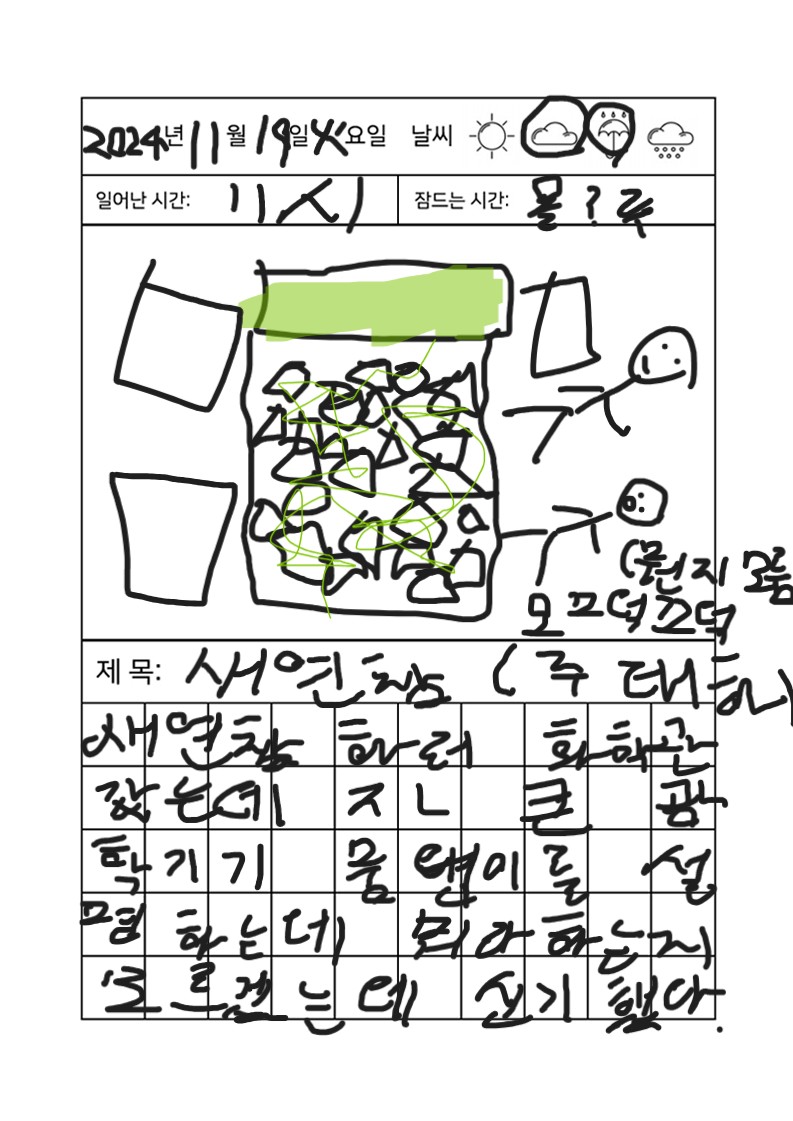 2024년 11월 19일 火요일 날씨
일어난 시간: 11시 잠드는 시간: 몰?루
(뭔지 모름
모프덕쯔덕
제 목: 새연참 (주 대하)
새연참 하러 화학관
갔는데 ㅈㄴ 큰 광
학기기 뭉탱이를 설
명 하는데 뭐라하는지
모르겠는데 신기했다.